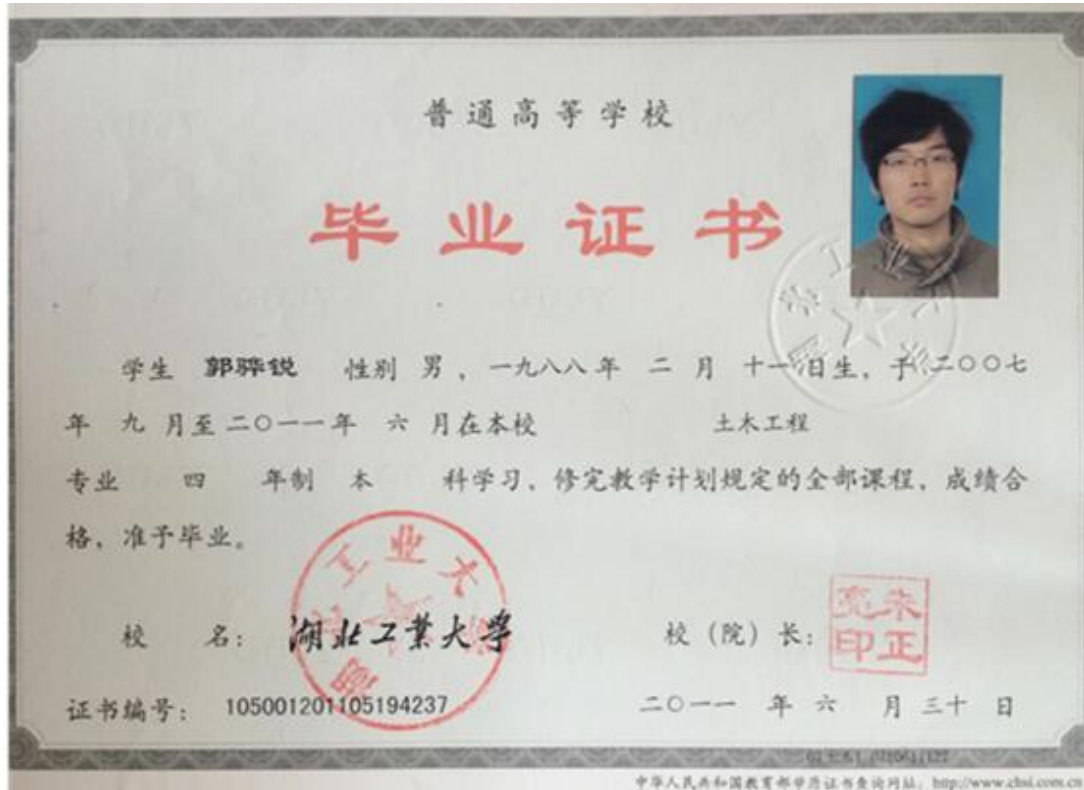 普通高等学校
毕业证书
学生 郭骅锐 性别 男，一九八八年 二 月 十一日生，于 二〇〇七
年 九 月至 二〇一一年 六 月在本校 土木工程
专业 四 年制 本 科学习，修完教学计划规定的全部课程，成绩合
格，准予毕业。
校 名： 湖北工业大学
校（院）长： 朱正亮印
证书编号： 105001201105194237
二〇一一 年 六 月 三十 日
中华人民共和国教育部学历证书查询网址：http://www.chsi.com.cn